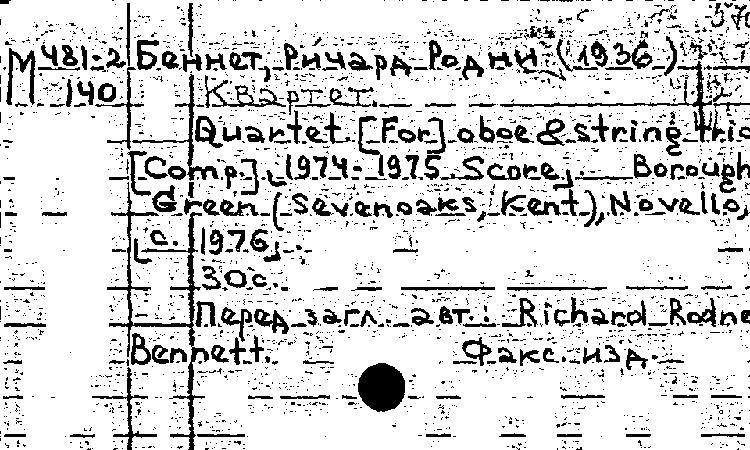 М 481-2 Беннет, Ричард Родни (1936)
140 Квартет.
Quartet [For] oboe & string trio
[Comp.] 1974-1975. Score. Borough
Green (Sevenoaks, Kent), Novello,
[c. 1976].
30с.
Перед загл. авт.: Richard Rodne
Bennett. Факс. изд.